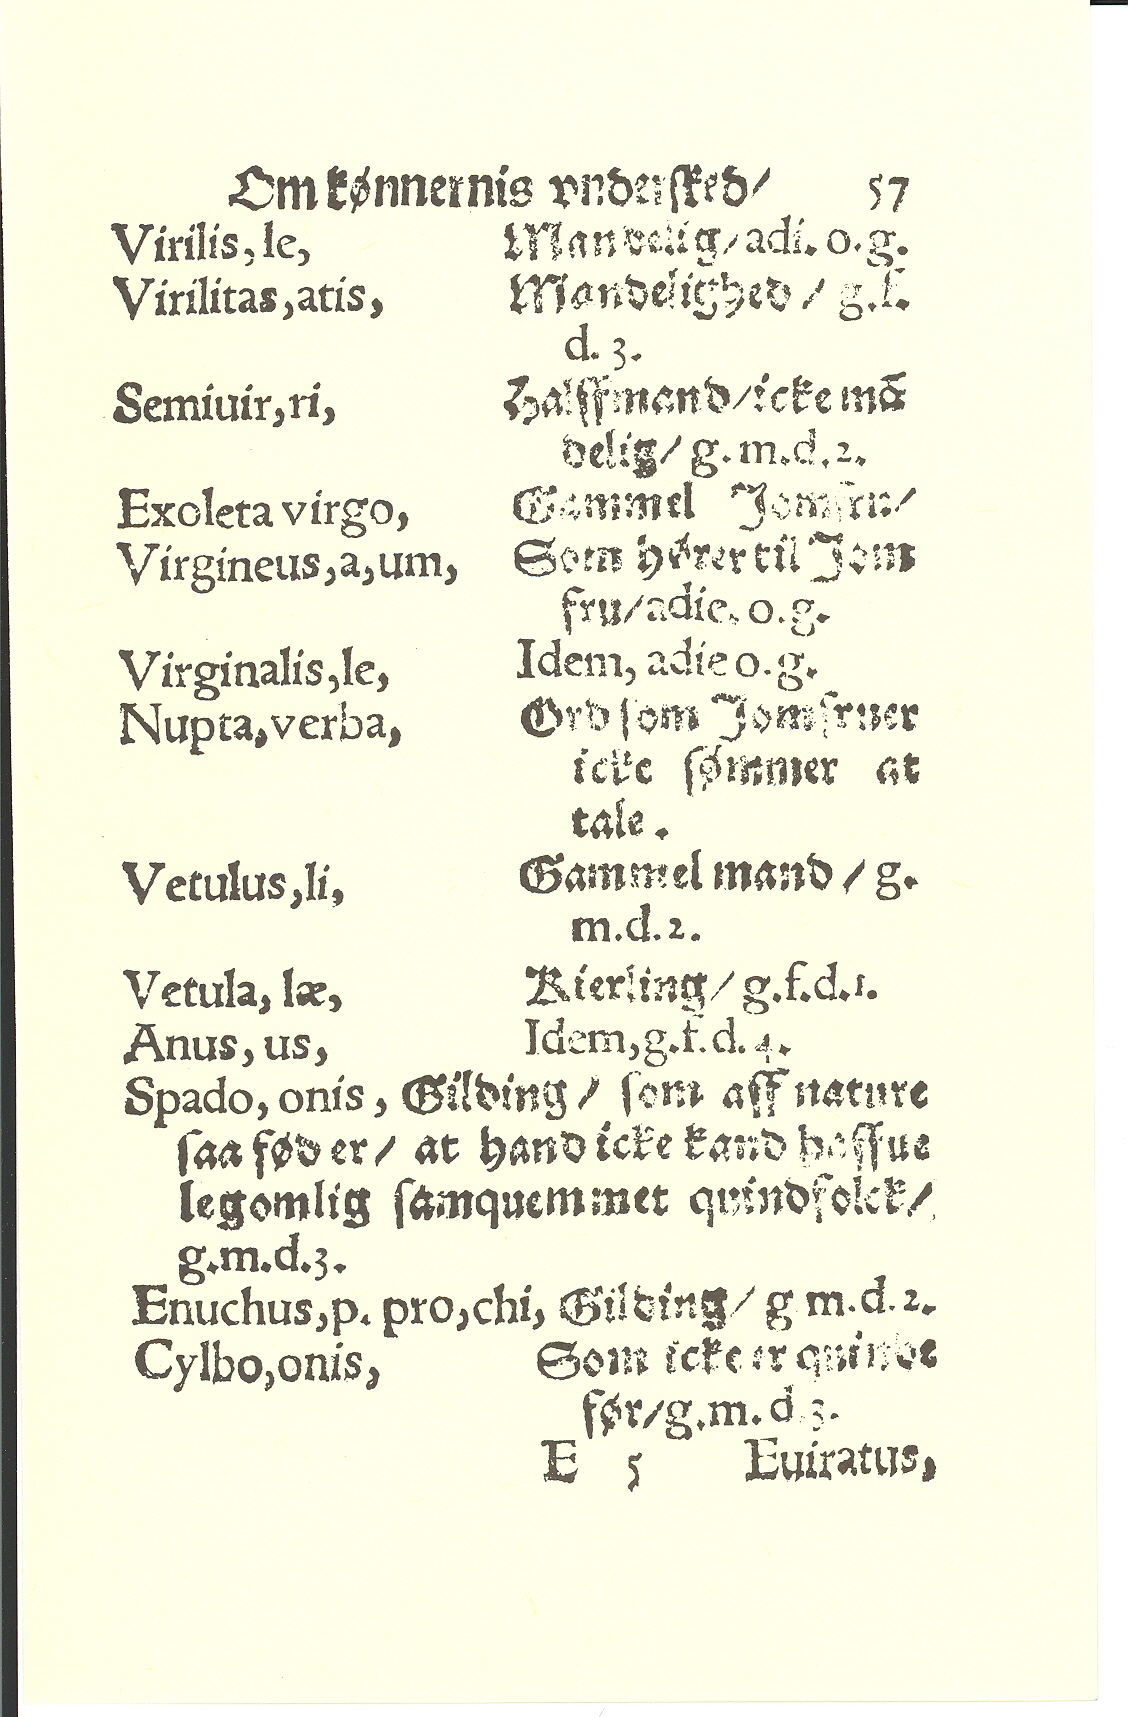 Om kønnernis vndersked/ 57
Virilis, le, Mandelig/adi. o.g.
Virilitas, atis, Mandelighed / g.f.
d. 3.
Semiuir, ri, Halffmand/icke mã
delig/ g. m.d.2.
Exoleta virgo, Gammel Jomfru/
Virgineus, a, um, Som hører til Jom
fru/adie. o.g.
Virginalis, le, Idem, adie o.g.
Nupta, verba, Ord som Jomfruer
icke sømmer at
tale.
Vetulus, li, Gammel mand / g.
m.d.2.
Vetula, læ, Kierling/ g.f.d.1.
Anus, us, Idem, g.f.d.4.
Spado, onis, Gilding/ som aff nature
saa fød er/ at hand icke kand haffue
legomlig samquemmet quindfolck/
g.m.d.3.
Enuchus, p. pro, chi, Gilding/ g m.d.2.
Cylbo, onis, Som icke er quinde
før/g.m.d.3.
E 5 Euiratus,